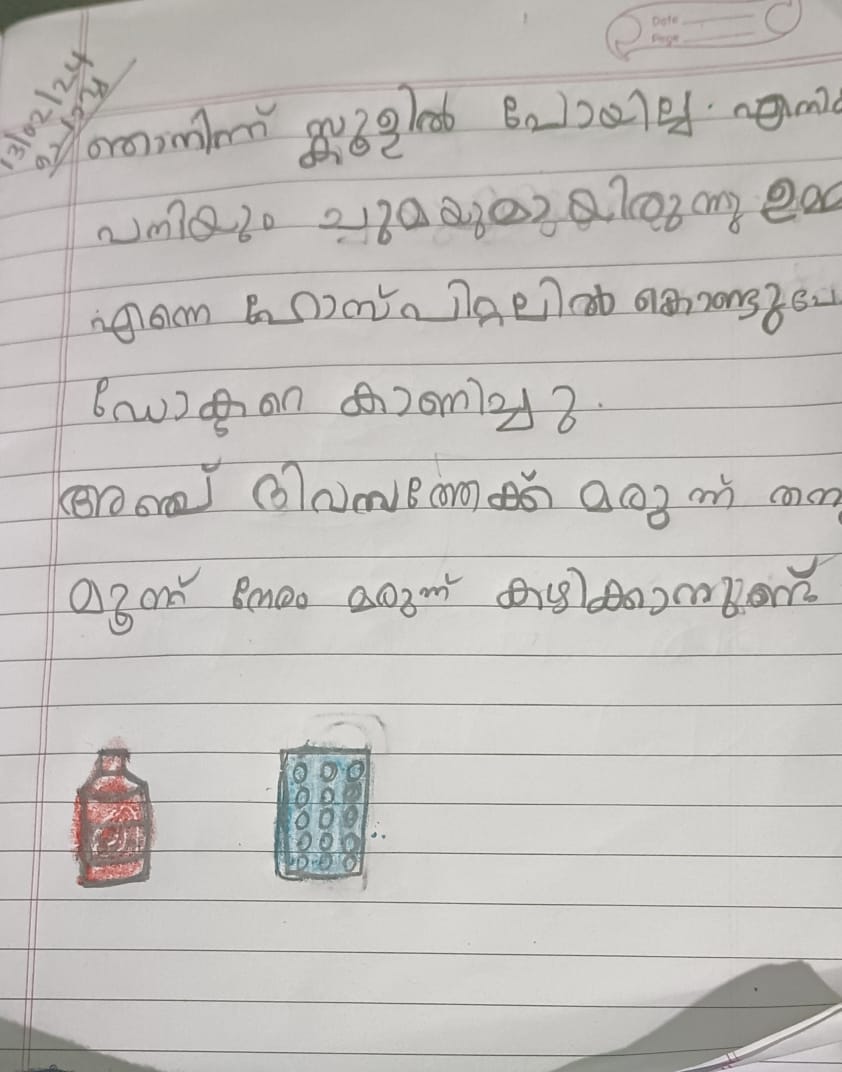 Date
Page
13/02/24
ഞാനിന്ന് സ്കൂളിൽ പോയില്ല. എനിക്
പനിയും ചുമയുമായിരുന്നു ഉമ
എന്നെ ഹോസ്പിറ്റലിൽ കൊണ്ടുപോ
ഡോക്ടറെ കാണിച്ചു.
അഞ്ച് ദിവസത്തേക്ക് മരുന്ന് തന്നു
മൂന്ന് നേരം മരുന്ന് കഴിക്കാനുണ്ട്